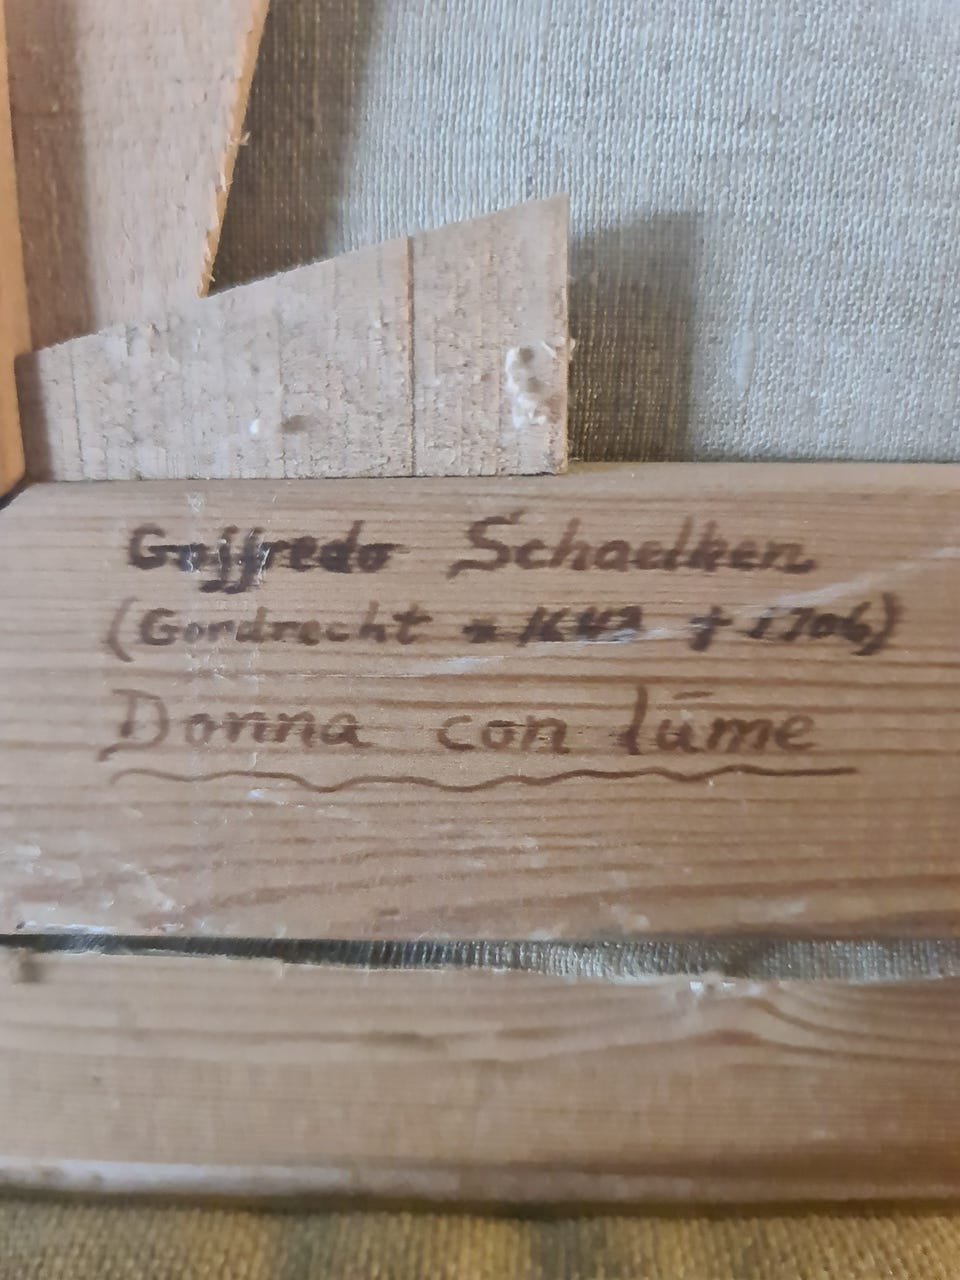 Goffredo Schaelken
(Gordrecht * 1643 † 1706)
Donna con lūme